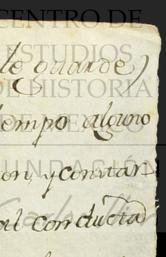 CENTRO DE
ESTUDIOS
le guarde
DE HISTORIA
tiempo alguno
DE MEXICO
FUNDACIÓN
on, y constar
tal conducta